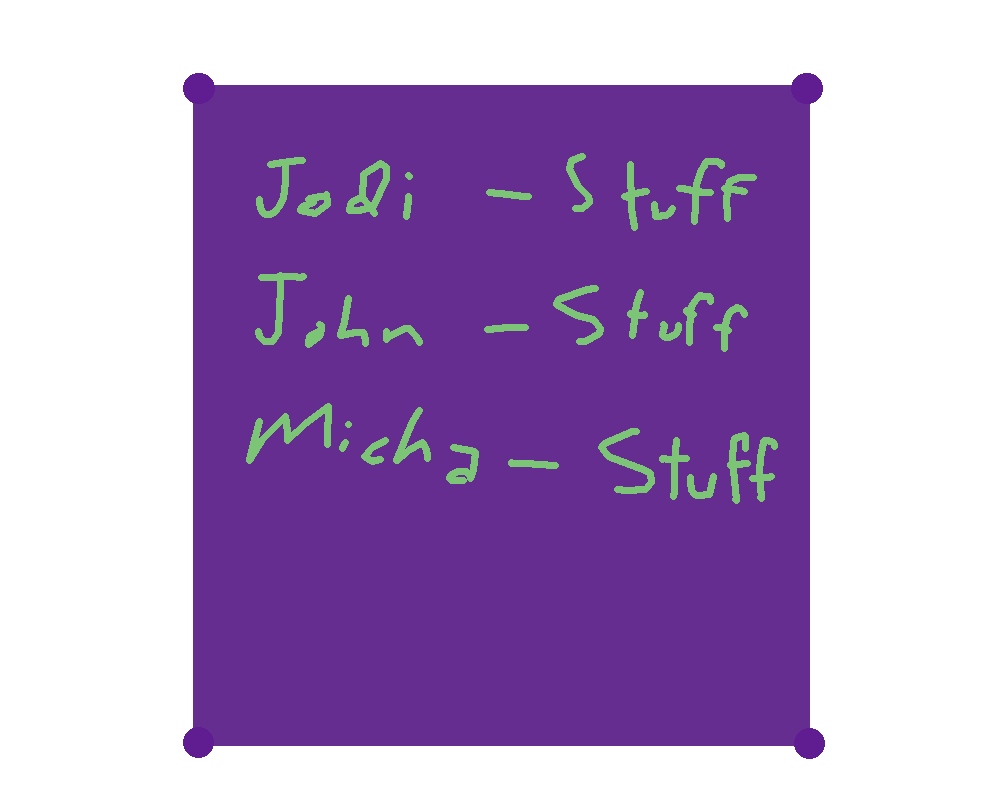 Jodi - Stuff
John - Stuff
Micha - Stuff